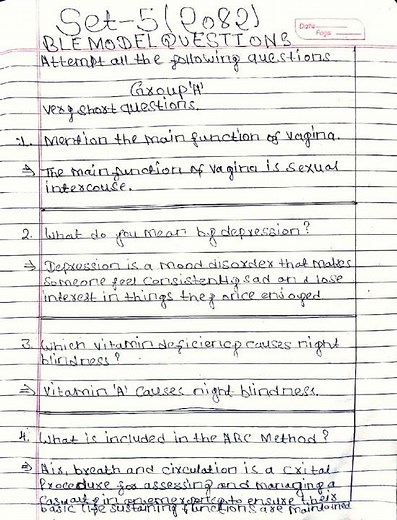 Set-5(2082)
Date
Page
BLE MODEL QUESTIONS
Attempt all the following questions.
Group 'A'
Very short questions.
1. Mention the main function of vagina.
⇒ The main function of vagina is sexual
intercouse.
2. What do you mean by depression?
⇒ Depression is a mood disorder that makes
someone feel consistently sad and lose
interest in things they once enjoyed
3. Which vitamin deficiency causes night
blindness?
⇒ Vitamin 'A' causes night blindness.
4. What is included in the ABC Method?
⇒ Air, breath and circulation is a crital
Procedure for assessing and managing a
casualty in an emergency to ensure their
basic life sustaining functions are maintained